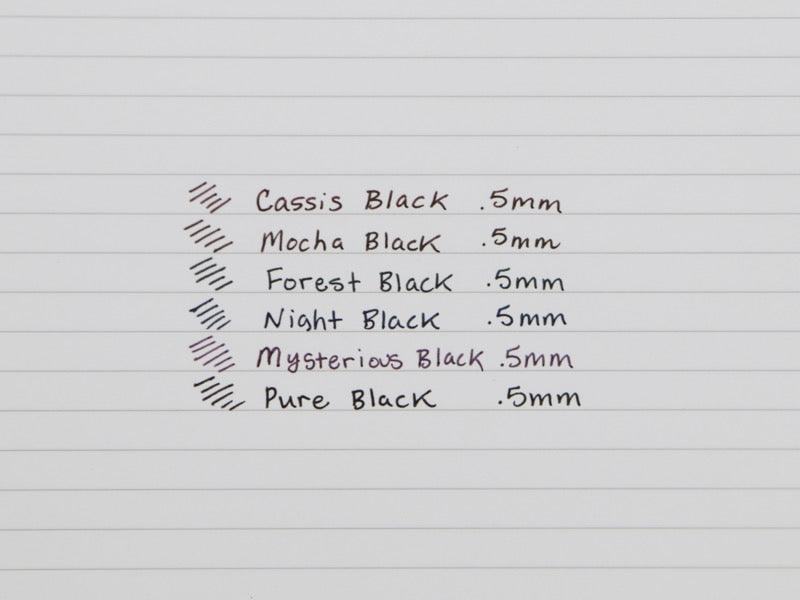 Cassis Black .5mm
Mocha Black .5mm
Forest Black .5mm
Night Black .5mm
Mysterious Black .5mm
Pure Black .5mm